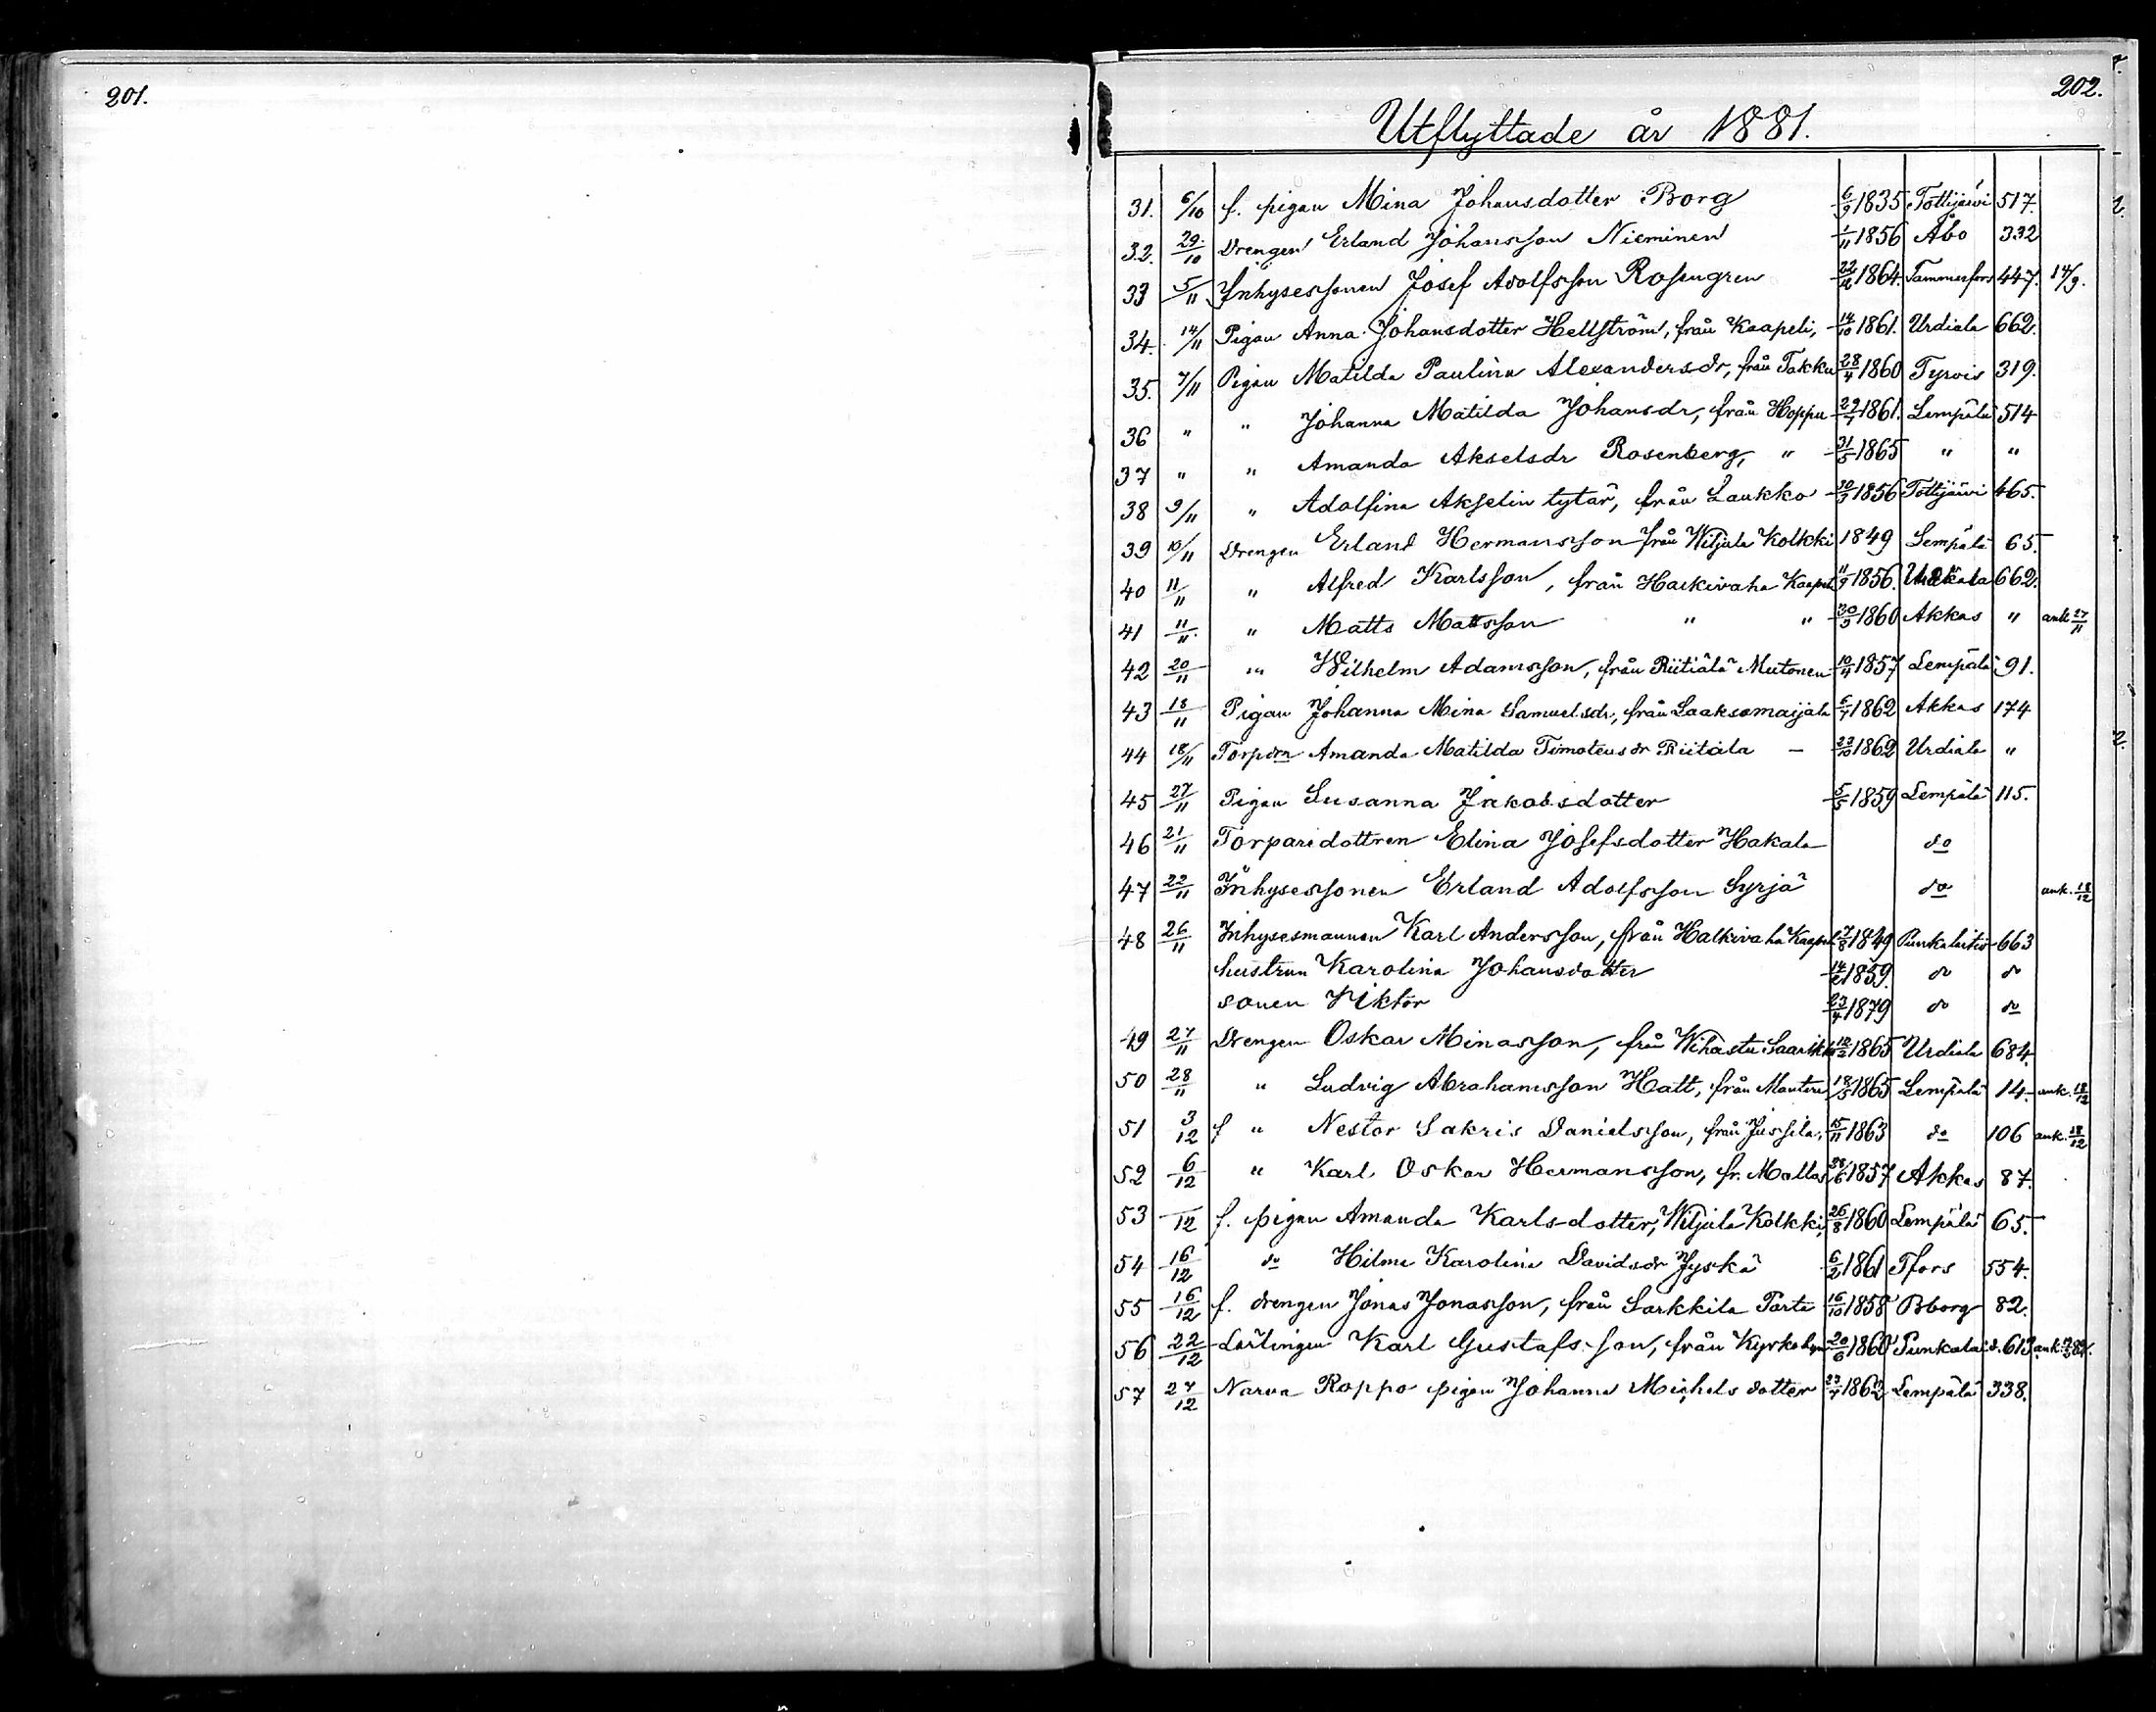 201.
202.
Utflyttade år 1881.
31. 6/10 f. pigan Mina Johansdotter Borg 6/9 1835 Tottijärvi 517.
32. 29/10 Drengen Erland Johansson Nieminen 1/11 1856 Åbo 332
33 5/11 Inhysessonen Josef Adolfsson Rosengren 1864. Tammerfors 447. 14/9.
34. 14/11 Pigan Anna Johansdotter Hellström, från Kaapeli, 14/10 1861. Urdiala 662.
35. 7/11 Pigan Matilda Paulina Alexandersdr, från Takku 28/4 1860 Tyrvis 319.
36 " " Johanna Matilda Johansdr, från Hoppu 29/7 1861. Lempälä 514
37 " " Amanda Akselsdr Rosenberg, " 31/5 1865 " "
38 9/11 " Adolfina Akselin tytär, från Laukko 30/3 1856 Tottijärvi 465.
39 10/11 Drengen Erland Hermansson från Wiljala Kolkki 1849 Lempälä 65.
40 11/11 " Alfred Karlsson, från Halkivaha Kaapeli 11/9 1856. Urdiala 662.
41 11/11. " Matts Mattsson " " 30/3 1860 Akkas " ank 27/11
42 20/11 " Wilhelm Adamsson, från Riitiälä Mutonen 10/4 1857 Lempälä 91.
43 18/11 Pigan Johanna Mina Samuelsdr, från Laaksomaijala 6/7 1862 Akkas 174
44 18/11 Torpdrn Amanda Matilda Timoteusdr Riitala – 23/10 1862 Urdiala "
45 27/11 Pigan Susanna Jakobsdotter 5/5 1859 Lempälä 115.
46 21/11 Torparedottren Elina Josefsdotter Hakala do
47 22/11 Inhysessonen Erland Adolfsson Syrjä do ank. 18/12
48 26/11 Inhysesmannen Karl Andersson, från Halkivaha Kaapeli 7/8 1849 Punkalaitio 663
hustrun Karolina Johansdotter 1859. do do
sonen Viktor 23/4 1879 do do
49 27/11 Drengen Oskar Minasson, från Wihastu 1865 Urdiala 684.
50 28/11 " Ludvig Abrahamsson Hatt, från Mantere 18/5 1865 Lempälä 14. ank. 18/12
51 3/12 f " Nestor Sakris Danielsson, från Jussila, 15/11 1863 do 106 ank. 18/12
52 6/12 " Karl Oskar Hermansson, fr. Mattas 28/6 1857 Akkas 87.
53 /12 f. pigan Amanda Karlsdotter, Wiljala Kolkki, 26/8 1860 Lempälä 65.
54 16/12 do Hilma Karolina Davidsdr Jyskä 6/2 1861 Tfors 554.
55 16/12 f. drengen Jonas Jonasson, från Sarkkila Parta 16/10 1858 Bborg 82.
56 22/12 Lärlingen Karl Gustafsson, från Kyrkobyn 20/6 1860 613 ank.
57 27/12 Narva Roppo pigan Johanna Michelsdotter 23/7 1862 Lempälä 338.